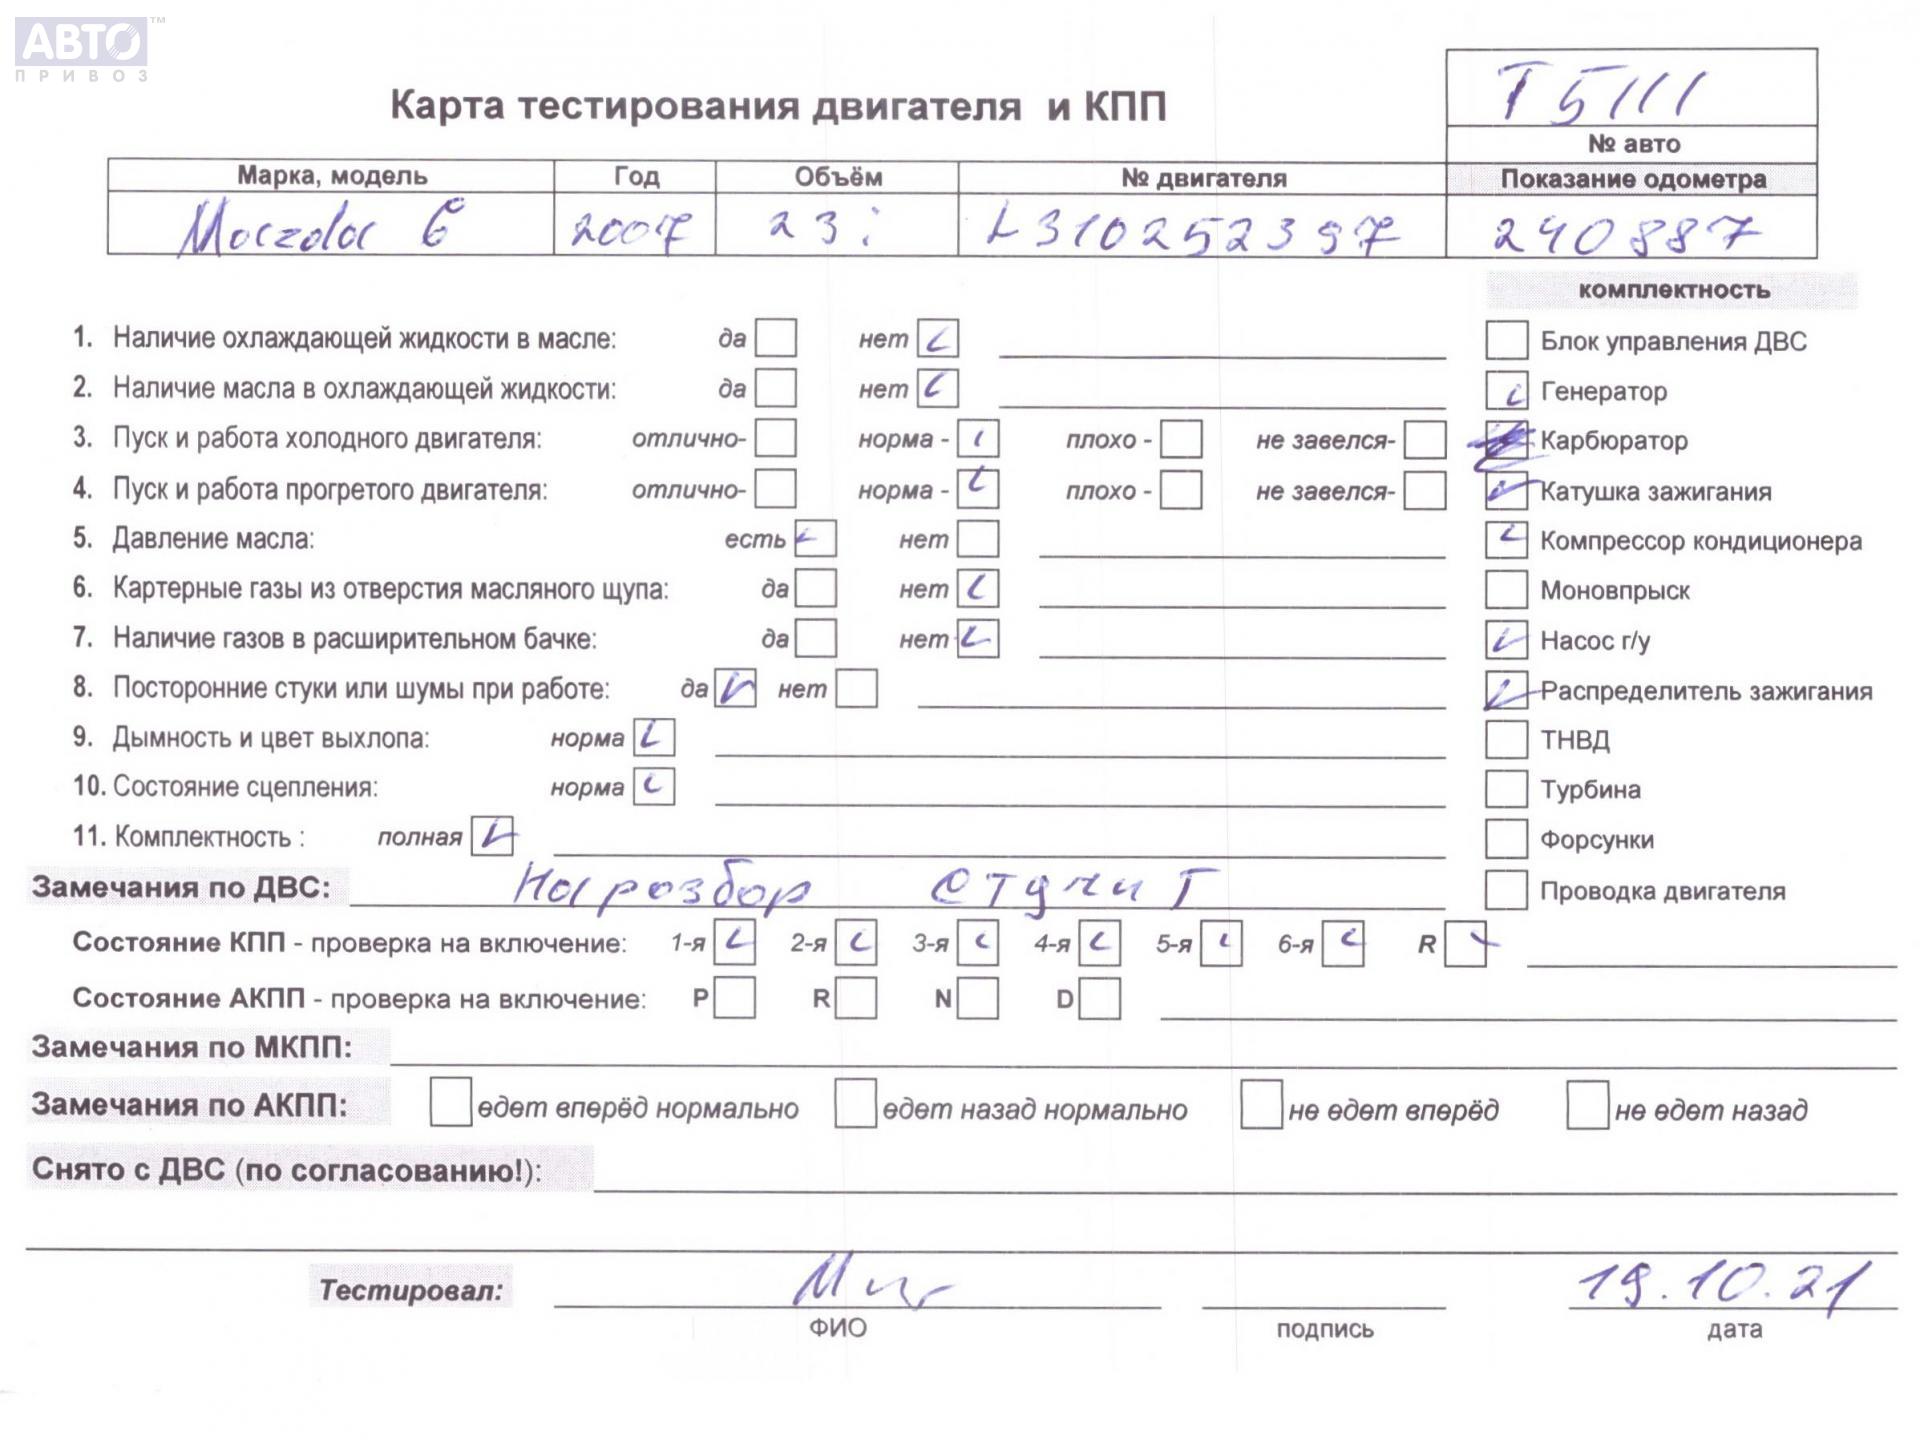 АВТО™
ПРИВОЗ
Т 5111
Карта тестирования двигателя и КПП
№ авто
Марка, модель Год Объём № двигателя Показание одометра
Mazda 6 2007 23i L310252397 240887
комплектность
1. Наличие охлаждающей жидкости в масле: да нет Блок управления ДВС
2. Наличие масла в охлаждающей жидкости: да нет Генератор
3. Пуск и работа холодного двигателя: отлично- норма - плохо - не завелся- Карбюратор
4. Пуск и работа прогретого двигателя: отлично- норма - плохо - не завелся- Катушка зажигания
5. Давление масла: есть нет Компрессор кондиционера
6. Картерные газы из отверстия масляного щупа: да нет Моновпрыск
7. Наличие газов в расширительном бачке: да нет Насос г/у
8. Посторонние стуки или шумы при работе: да нет Распределитель зажигания
9. Дымность и цвет выхлопа: норма ТНВД
10. Состояние сцепления: норма Турбина
11. Комплектность : полная Форсунки
Замечания по ДВС: На розбор стучит Проводка двигателя
Состояние КПП - проверка на включение: 1-я 2-я 3-я 4-я 5-я 6-я R
Состояние АКПП - проверка на включение: P R N D
Замечания по МКПП:
Замечания по АКПП: едет вперёд нормально едет назад нормально не едет вперёд не едет назад
Снято с ДВС (по согласованию!):
Тестировал: 19.10.21
ФИО подпись дата